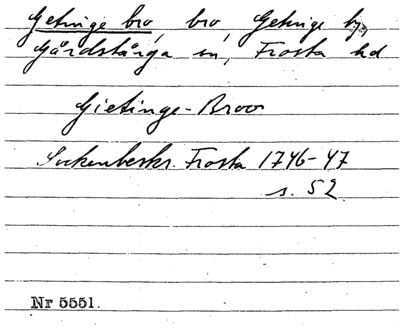 Getinge bro, bro, Getinge by,
Gårdstånga sn, Frosta hd
Gietinge-Broo
Sockenbeskr. Frosta 1746-47
s. 52.
Nr 5551.